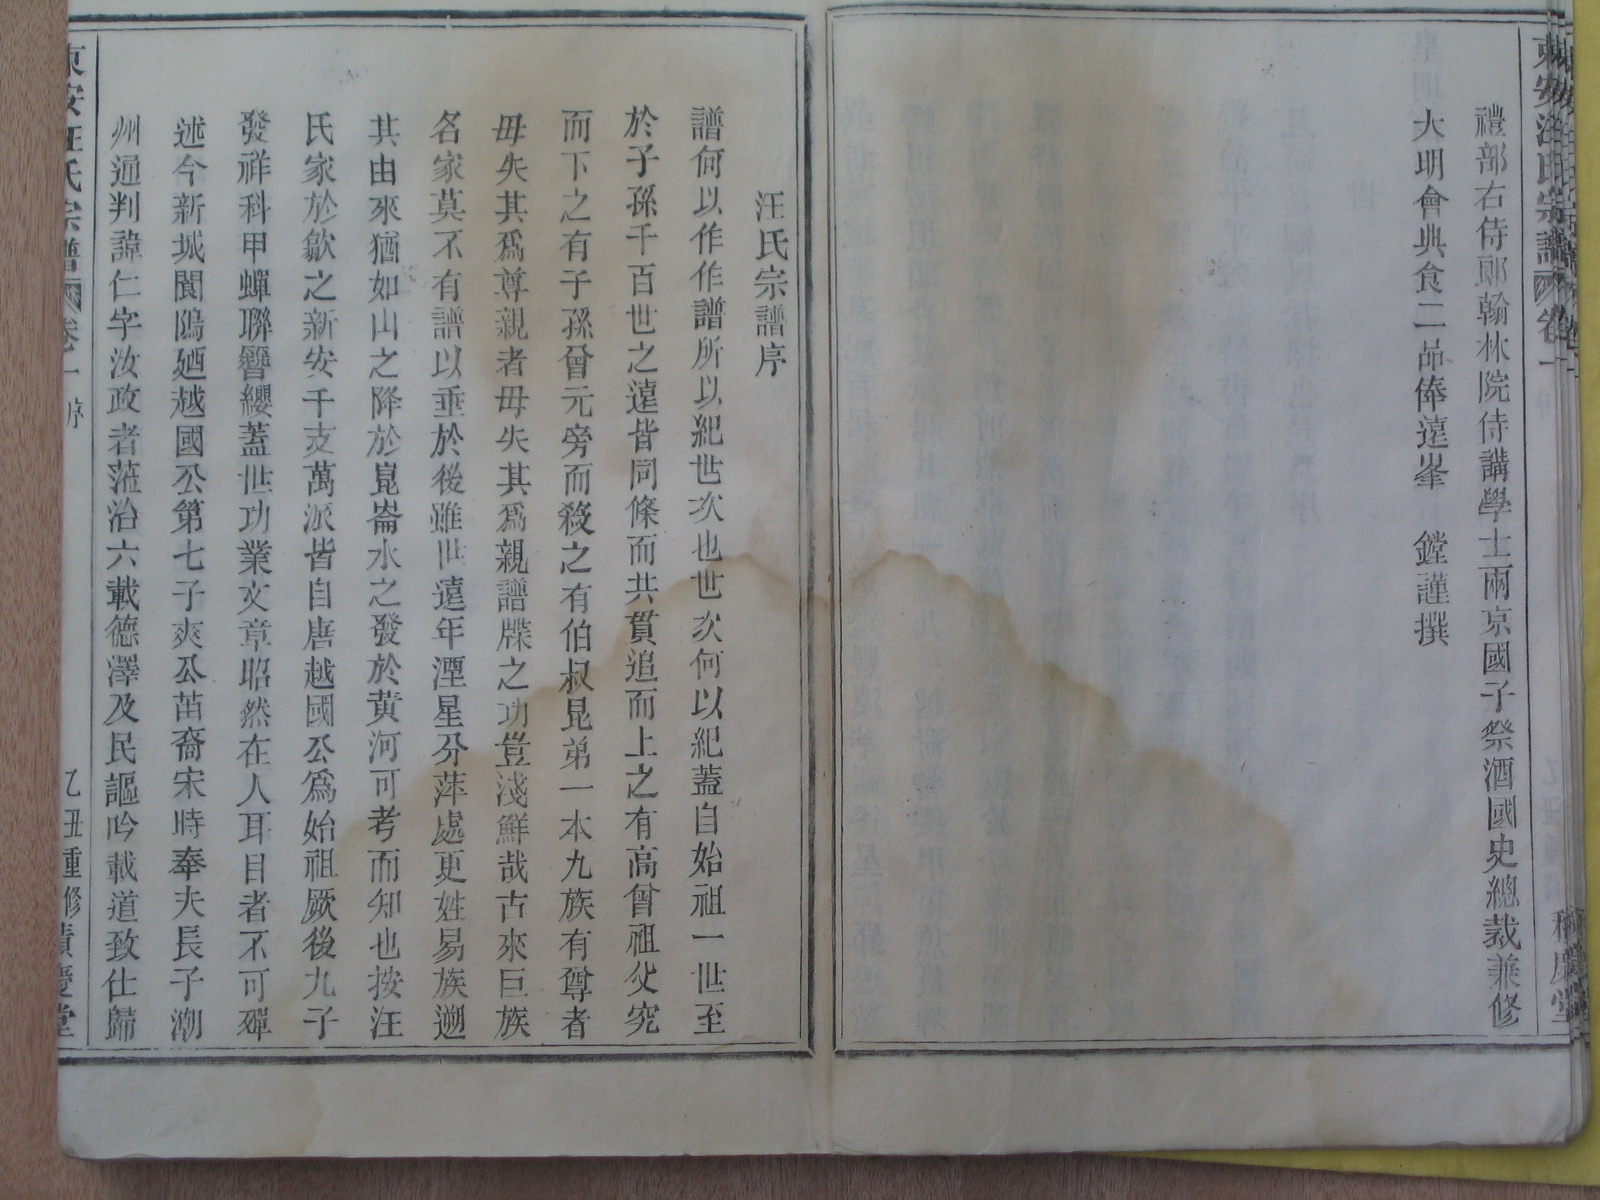 東安汪氏宗譜 卷一
禮部右侍郞翰林院侍講學士兩京國子祭酒國史總裁兼修
大明會典食二品俸遠峯 鏜謹撰
汪氏宗譜序
譜何以作作譜所以紀世次也世次何以紀蓋自始祖一世至
於子孫千百世之遠皆同條而共貫追而上之有高曾祖父究
而下之有子孫曾元旁而殺之有伯叔昆弟一本九族有尊者
毋失其爲尊親者毋失其爲親譜牒之功豈淺鮮哉古來巨族
名家莫不有譜以垂於後雖世遠年湮星分萍處更姓易族遡
其由來猶如山之降於崑崙水之發於黃河可考而知也按汪
氏家於歙之新安千支萬派皆自唐越國公爲始祖厥後九子
發祥科甲蟬聯簪纓蓋世功業文章昭然在人耳目者不可殫
述今新城閬隝廼越國公第七子爽公苗裔宋時奉夫長子潮
州通判諱仁字汝政者蒞治六載德澤及民謳吟載道致仕歸
東安汪氏宗譜 卷一 序 乙丑重修 積慶堂